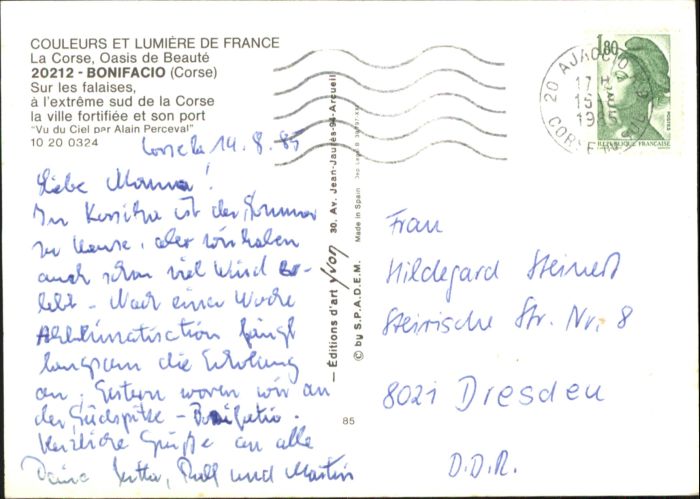 COULEURS ET LUMIÈRE DE FRANCE
La Corse, Oasis de Beauté
20212 - BONIFACIO (Corse)
Sur les falaises,
à l'extrême sud de la Corse
la ville fortifiée et son port
"Vu du Ciel par Alain Perceval"
10 20 0324
14.8.85
Liebe Mamma!
In Korsika ist der Sommer
zu Hause, aber wir haben
auch schon viel Wind er-
lebt. Nach einer Woche
Akklimatisation fängt
langsam die Erholung
an. Gestern waren wir an
der Südspitze - Bonifatio.
Herzliche Grüße an alle
Deine Jutta, Rolf und Martin
— Éditions d'art yvon 30, Av. Jean-Jaurès-94-Arcueil
© by S.P.A.D.E.M. Made in Spain
85
1,80
RÉPUBLIQUE FRANÇAISE
POSTES
20 AJACCIO
17 H
15
CORSE
Frau
Hildegard Steinert
Steirische Str. Nr. 8
8021 Dresden
D.D.R.